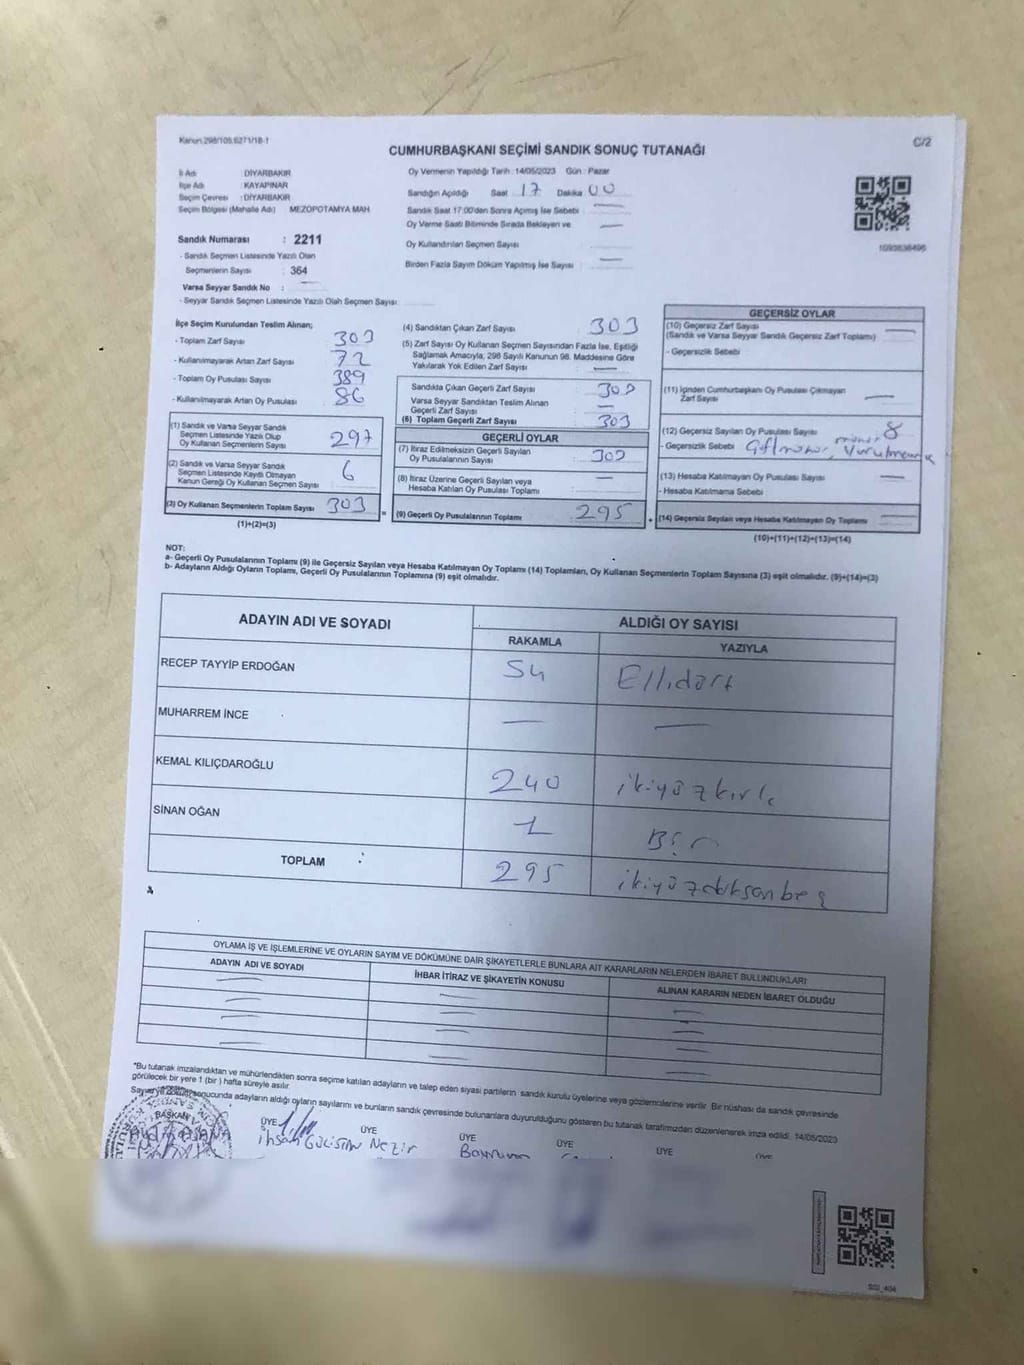 Kanun:298/105,6271/18-1
C/2
CUMHURBAŞKANI SEÇİMİ SANDIK SONUÇ TUTANAĞI
İl Adı : DİYARBAKIR
İlçe Adı : KAYAPINAR
Seçim Çevresi : DİYARBAKIR
Seçim Bölgesi (Mahalle Adı) MEZOPOTAMYA MAH
Oy Vermenin Yapıldığı Tarih : 14/05/2023 Gün : Pazar
Sandığın Açıldığı Saat 17 Dakika 00
Sandık Saat 17:00'den Sonra Açımış İse Sebebi
Oy Verme Saati Bitiminde Sırada Bekleyen ve
Oy Kullandırılan Seçmen Sayısı
Birden Fazla Sayım Döküm Yapılmış İse Sayısı
1093838496
Sandık Numarası : 2211
- Sandık Seçmen Listesinde Yazılı Olan
Seçmenlerin Sayısı : 364
Varsa Seyyar Sandık No :
- Seyyar Sandık Seçmen Listesinde Yazılı Olan Seçmen Sayısı
İlçe Seçim Kurulundan Teslim Alınan;
- Toplam Zarf Sayısı 303
- Kullanılmayarak Artan Zarf Sayısı 72
- Toplam Oy Pusulası Sayısı 389
- Kullanılmayarak Artan Oy Pusulası 86
(1) Sandık ve Varsa Seyyar Sandık
Seçmen Listesinde Yazılı Olup
Oy Kullanan Seçmenlerin Sayısı 297
(2) Sandık ve Varsa Seyyar Sandık
Seçmen Listesinde Kayıtlı Olmayan
Kanun Gereği Oy Kullanan Seçmen Sayısı 6
(3) Oy Kullanan Seçmenlerin Toplam Sayısı 303
(1)+(2)=(3)
(4) Sandıktan Çıkan Zarf Sayısı 303
(5) Zarf Sayısı Oy Kullanan Seçmen Sayısından Fazla İse, Eşitliği
Sağlamak Amacıyla, 298 Sayılı Kanunun 98. Maddesine Göre
Yakılarak Yok Edilen Zarf Sayısı
Sandıkta Çıkan Geçerli Zarf Sayısı 303
Varsa Seyyar Sandıktan Teslim Alınan
Geçerli Zarf Sayısı
(6) Toplam Geçerli Zarf Sayısı 303
GEÇERLİ OYLAR
(7) İtiraz Edilmeksizin Geçerli Sayılan
Oy Pusulalarının Sayısı 303
(8) İtiraz Üzerine Geçerli Sayılan veya
Hesaba Katılan Oy Pusulası Toplamı
(9) Geçerli Oy Pusulalarının Toplamı 295
GEÇERSİZ OYLAR
(10) Geçersiz Zarf Sayısı
(Sandık ve Varsa Seyyar Sandık Geçersiz Zarf Toplamı)
- Geçersizlik Sebebi
(11) İçinden Cumhurbaşkanı Oy Pusulası Çıkmayan
Zarf Sayısı
(12) Geçersiz Sayılan Oy Pusulası Sayısı 8
- Geçersizlik Sebebi
(13) Hesaba Katılmayan Oy Pusulası Sayısı
- Hesaba Katılmama Sebebi
(14) Geçersiz Sayılan veya Hesaba Katılmayan Oy Toplamı
(10)+(11)+(12)+(13)=(14)
NOT:
a- Geçerli Oy Pusulalarının Toplamı (9) ile Geçersiz Sayılan veya Hesaba Katılmayan Oy Toplamı (14) Toplamları, Oy Kullanan Seçmenlerin Toplam Sayısına (3) eşit olmalıdır. (9)+(14)=(3)
b- Adayların Aldığı Oyların Toplamı, Geçerli Oy Pusulalarının Toplamına (9) eşit olmalıdır.
ADAYIN ADI VE SOYADI ALDIĞI OY SAYISI
RAKAMLA YAZIYLA
RECEP TAYYİP ERDOĞAN 54 Ellidört
MUHARREM İNCE
KEMAL KILIÇDAROĞLU 240 ikiyüzkırk
SİNAN OĞAN 1 Bir
TOPLAM : 295 ikiyüzdoksanbeş
OYLAMA İŞ VE İŞLEMLERİNE VE OYLARIN SAYIM VE DÖKÜMÜNE DAİR ŞİKAYETLERLE BUNLARA AİT KARARLARIN NELERDEN İBARET BULUNDUKLARI
ADAYIN ADI VE SOYADI İHBAR İTİRAZ VE ŞİKAYETİN KONUSU ALINAN KARARIN NEDEN İBARET OLDUĞU
*Bu tutanak imzalandıktan ve mühürlendikten sonra seçime katılan adayların ve talep eden siyasi partilerin sandık kurulu üyelerine veya gözlemcilerine verilir. Bir nüshası da sandık çevresinde
görülecek bir yere 1 (bir ) hafta süreyle asılır.
Sayım ve döküm sonucunda adayların aldığı oyların sayılarını ve bunların sandık çevresinde bulunanlara duyurulduğunu gösteren bu tutanak tarafımızdan düzenlenerek imza edildi. 14/05/2023
BAŞKAN ÜYE ÜYE ÜYE ÜYE ÜYE ÜYE
ihsan Gülistan Nezir